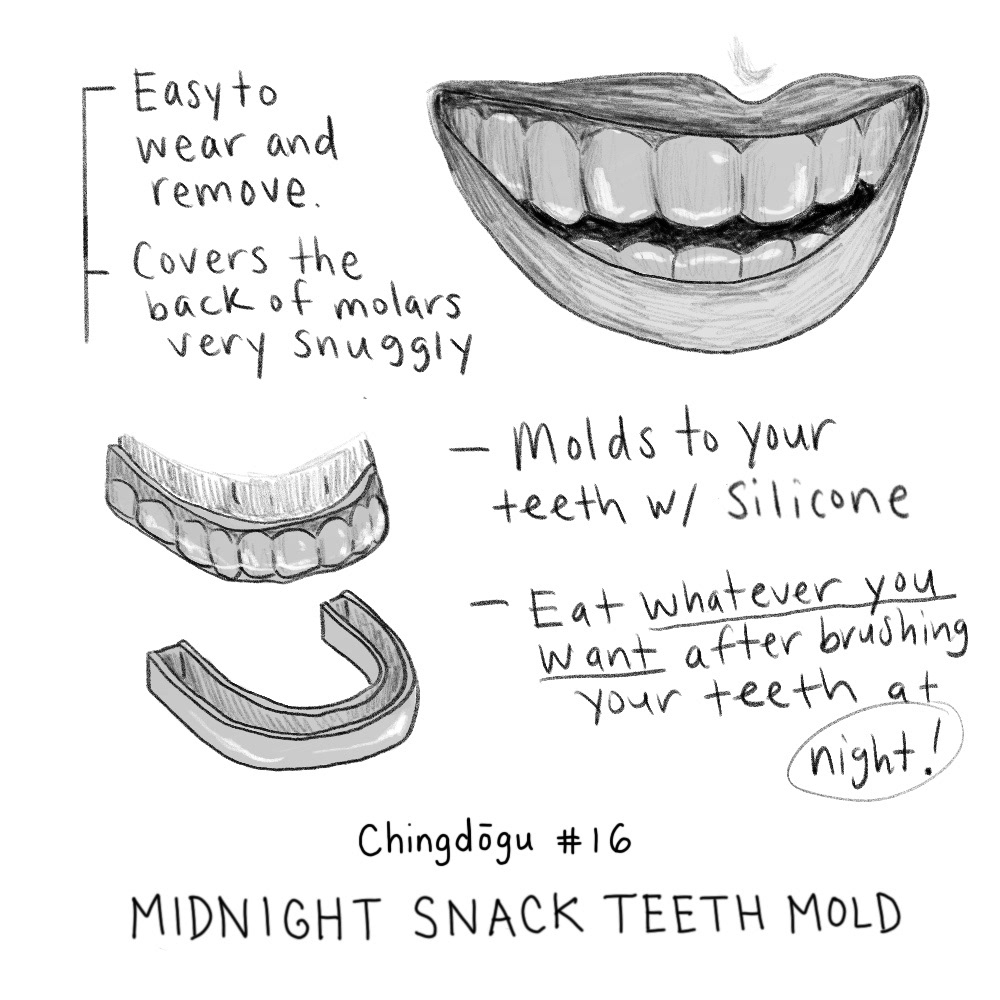 Easy to
wear and
remove.
Covers the
back of molars
very snuggly
— Molds to your
teeth w/ silicone
— Eat whatever you
want after brushing
your teeth at
night!
Chingdōgu #16
MIDNIGHT SNACK TEETH MOLD